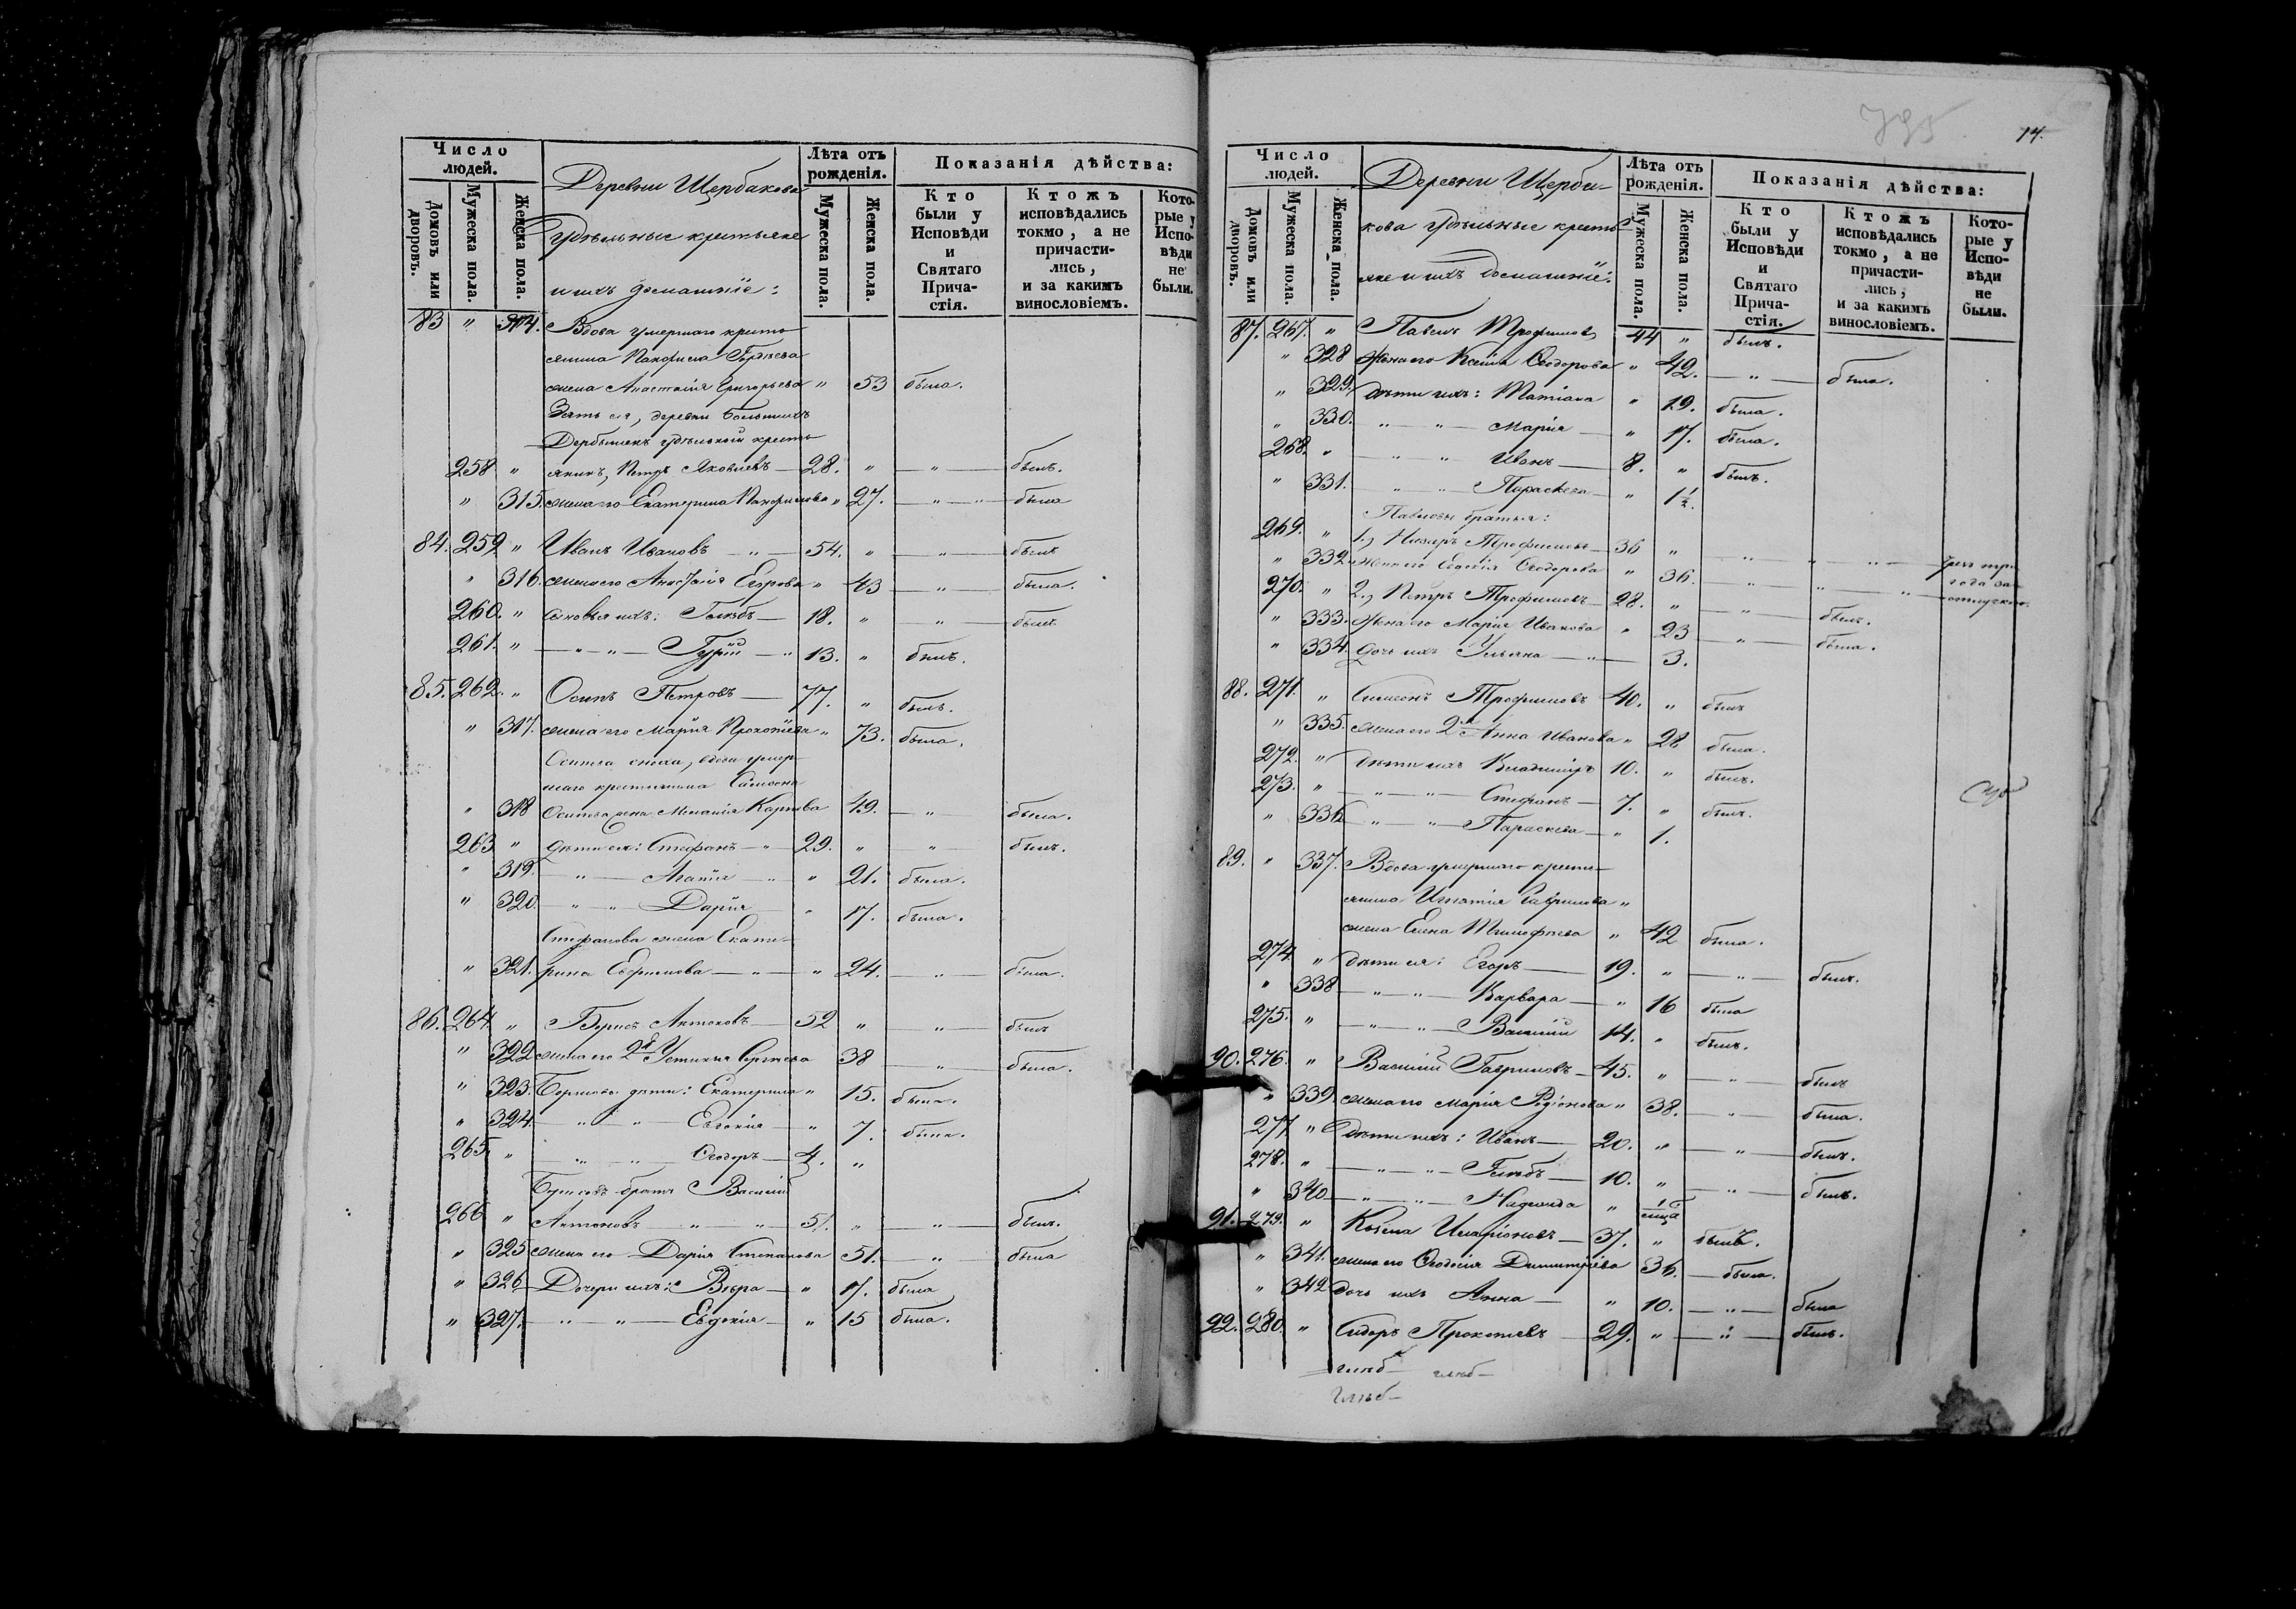 795
14.
Число людей.
Деревни Щербакова
Лѣта отъ рожденія.
Показанія дѣйства:
Домовъ или дворовъ.
Мужеска пола.
Женска пола.
удѣльные крестьяне
и ихъ домашніе:
Мужеска пола.
Женска пола.
Кто были у Исповѣди и Святаго Прича-стія.
Ктожъ исповѣдались токмо, а не причасти-лись, и за какимъ винословіемъ.
Кото-рые у Испо-вѣди не были.
83 " 314. Вдова умершаго кресть-
янина Панфила
жена Анастасія Григорьева " 53 была.
Зять ея, деревни Большихъ
Дербышекъ удѣльной кресть-
258 " янинъ, Петръ Яковлевъ — 28. " — " — былъ.
" 315. жена его Екатерина Панфилова " 27. — " — " была
84. 259 " Иванъ Ивановъ — " — 54. " — " — былъ
" 316. жена его Анастасія Егорова " 43 — " — была.
260. " сыновья ихъ: Глѣбъ — 18. " — " — былъ
261. " — " — " — Гурій — " 13. " былъ.
85. 262. " Осипъ Петровъ — 77. " былъ.
" 317. жена его Марія Прокопіева " 73. была.
Осипова сноха, вдова умер-
шаго крестьянина Самсона
" 318 Осипова жена Меланія Карпова 49. — " — была.
263 " дѣти ея: Стефанъ — " 29. " — " — былъ.
" 319. — " — Агапія — " " 21. была.
" 320. — " — " — Дарія " 17. была.
Стефанова жена Екате-
" 321. рина Евфимова — " — " 24. — " — была.
86. 264. " Борисъ Антоновъ — 52 " — " — былъ
" 322 жена его 2я Устинья Сергѣева 38 — " — была.
" 323. Борисовы дѣти: Екатерина " 15. была.
" 324. — " — " — Евдокія — " 7. была.
265. " — " — " — Ѳеодоръ — 4. "
Борисовъ братъ Василій
266 " Антоновъ — " — " — 51. " — " — былъ.
" 325 жена его Дарія Степанова 51. — " — была
" 326 Дочери ихъ: Вѣра — " 17. была
" 327. — " — " — Евдокія — " 15 была.
Число людей.
Деревни Щерба-
Лѣта отъ рожденія.
Показанія дѣйства:
Домовъ или дворовъ.
Мужеска пола.
Женска пола.
кова удѣльные кресть-
яне и ихъ домашніе:
Мужеска пола.
Женска пола.
Кто были у Исповѣди и Святаго Прича-стія.
Ктожъ исповѣдались токмо, а не причасти-лись, и за какимъ винословіемъ.
Кото-рые у Испо-вѣди не были.
87. 267. " Павелъ Трофимовъ 44 " былъ.
" 328 Жена его Ксенія Ѳеодорова " 42. — " — была.
" 329. Дѣти ихъ: Татіана " 19. была.
" 330. " — " — Марія — " 17. была.
268. " — " — " Иванъ — 8. " былъ.
" 331. — " — " — Параскева — " 1½.
Павловы братья:
269. " 1., Назаръ Трофимовъ — 36 " — " — " — " —
" 332. Жена его Евдокія Ѳеодорова " 36. — " — " — "
270. " 2., Петръ Трофимовъ — 28. " — " — былъ.
" 333. Жена его Марія Иванова " 23 — " — была.
" 334. Дочь ихъ Ульяна — " — 3.
88. 271. " Симеонъ Трофимовъ 40. " былъ
" 335. жена его 2я Анна Иванова " 28 была.
272. " дѣти ихъ Владиміръ 10. " былъ.
273. " — " — " — Стефанъ — 7. " былъ.
" 336 — " — " — Параскева — " 1.
89. " 337. Вдова умершаго кресть-
янина Игнатія Гаврилова "
жена Елена Тимофѣева " 42 была.
274. " дѣти ея: Егоръ — 19. " — " — былъ.
" 338 — " — " — Варвара — " 16 была
275. " — " — " — Василій 14. " былъ.
90. 276. " Василій Гавриловъ — 45. " — " — былъ
" 339. жена его Марія Родіонова " 38. — " — была.
277. " дѣти ихъ: Иванъ — 20. " — " — былъ.
278. " — " — " — Глѣбъ — 10. " — " — былъ.
" 340 — " — " — Надежда "
91. 279. " Козьма Иларіоновъ — 37. " былъ.
" 341. жена его Ѳеодосія Димитріева 36. — была.
" 342 дочь ихъ Анна — " 10. — " — была
92. 280. " Сидоръ Прокопіевъ — 29. " — " — былъ.
глѣб- глѣб-
Глѣб-